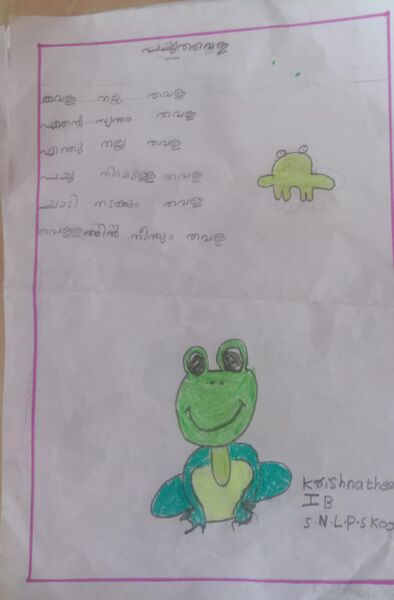 പച്ചത്തവള
തവള നല്ല തവള
എന്റെ സ്വന്തം തവള
എന്തു നല്ല തവള
പച്ച നിറമുള്ള തവള
ചാടി നടക്കും തവള
വെള്ളത്തിൽ നീന്തും തവള
Krishnathee
I B
S.N.L.P.S